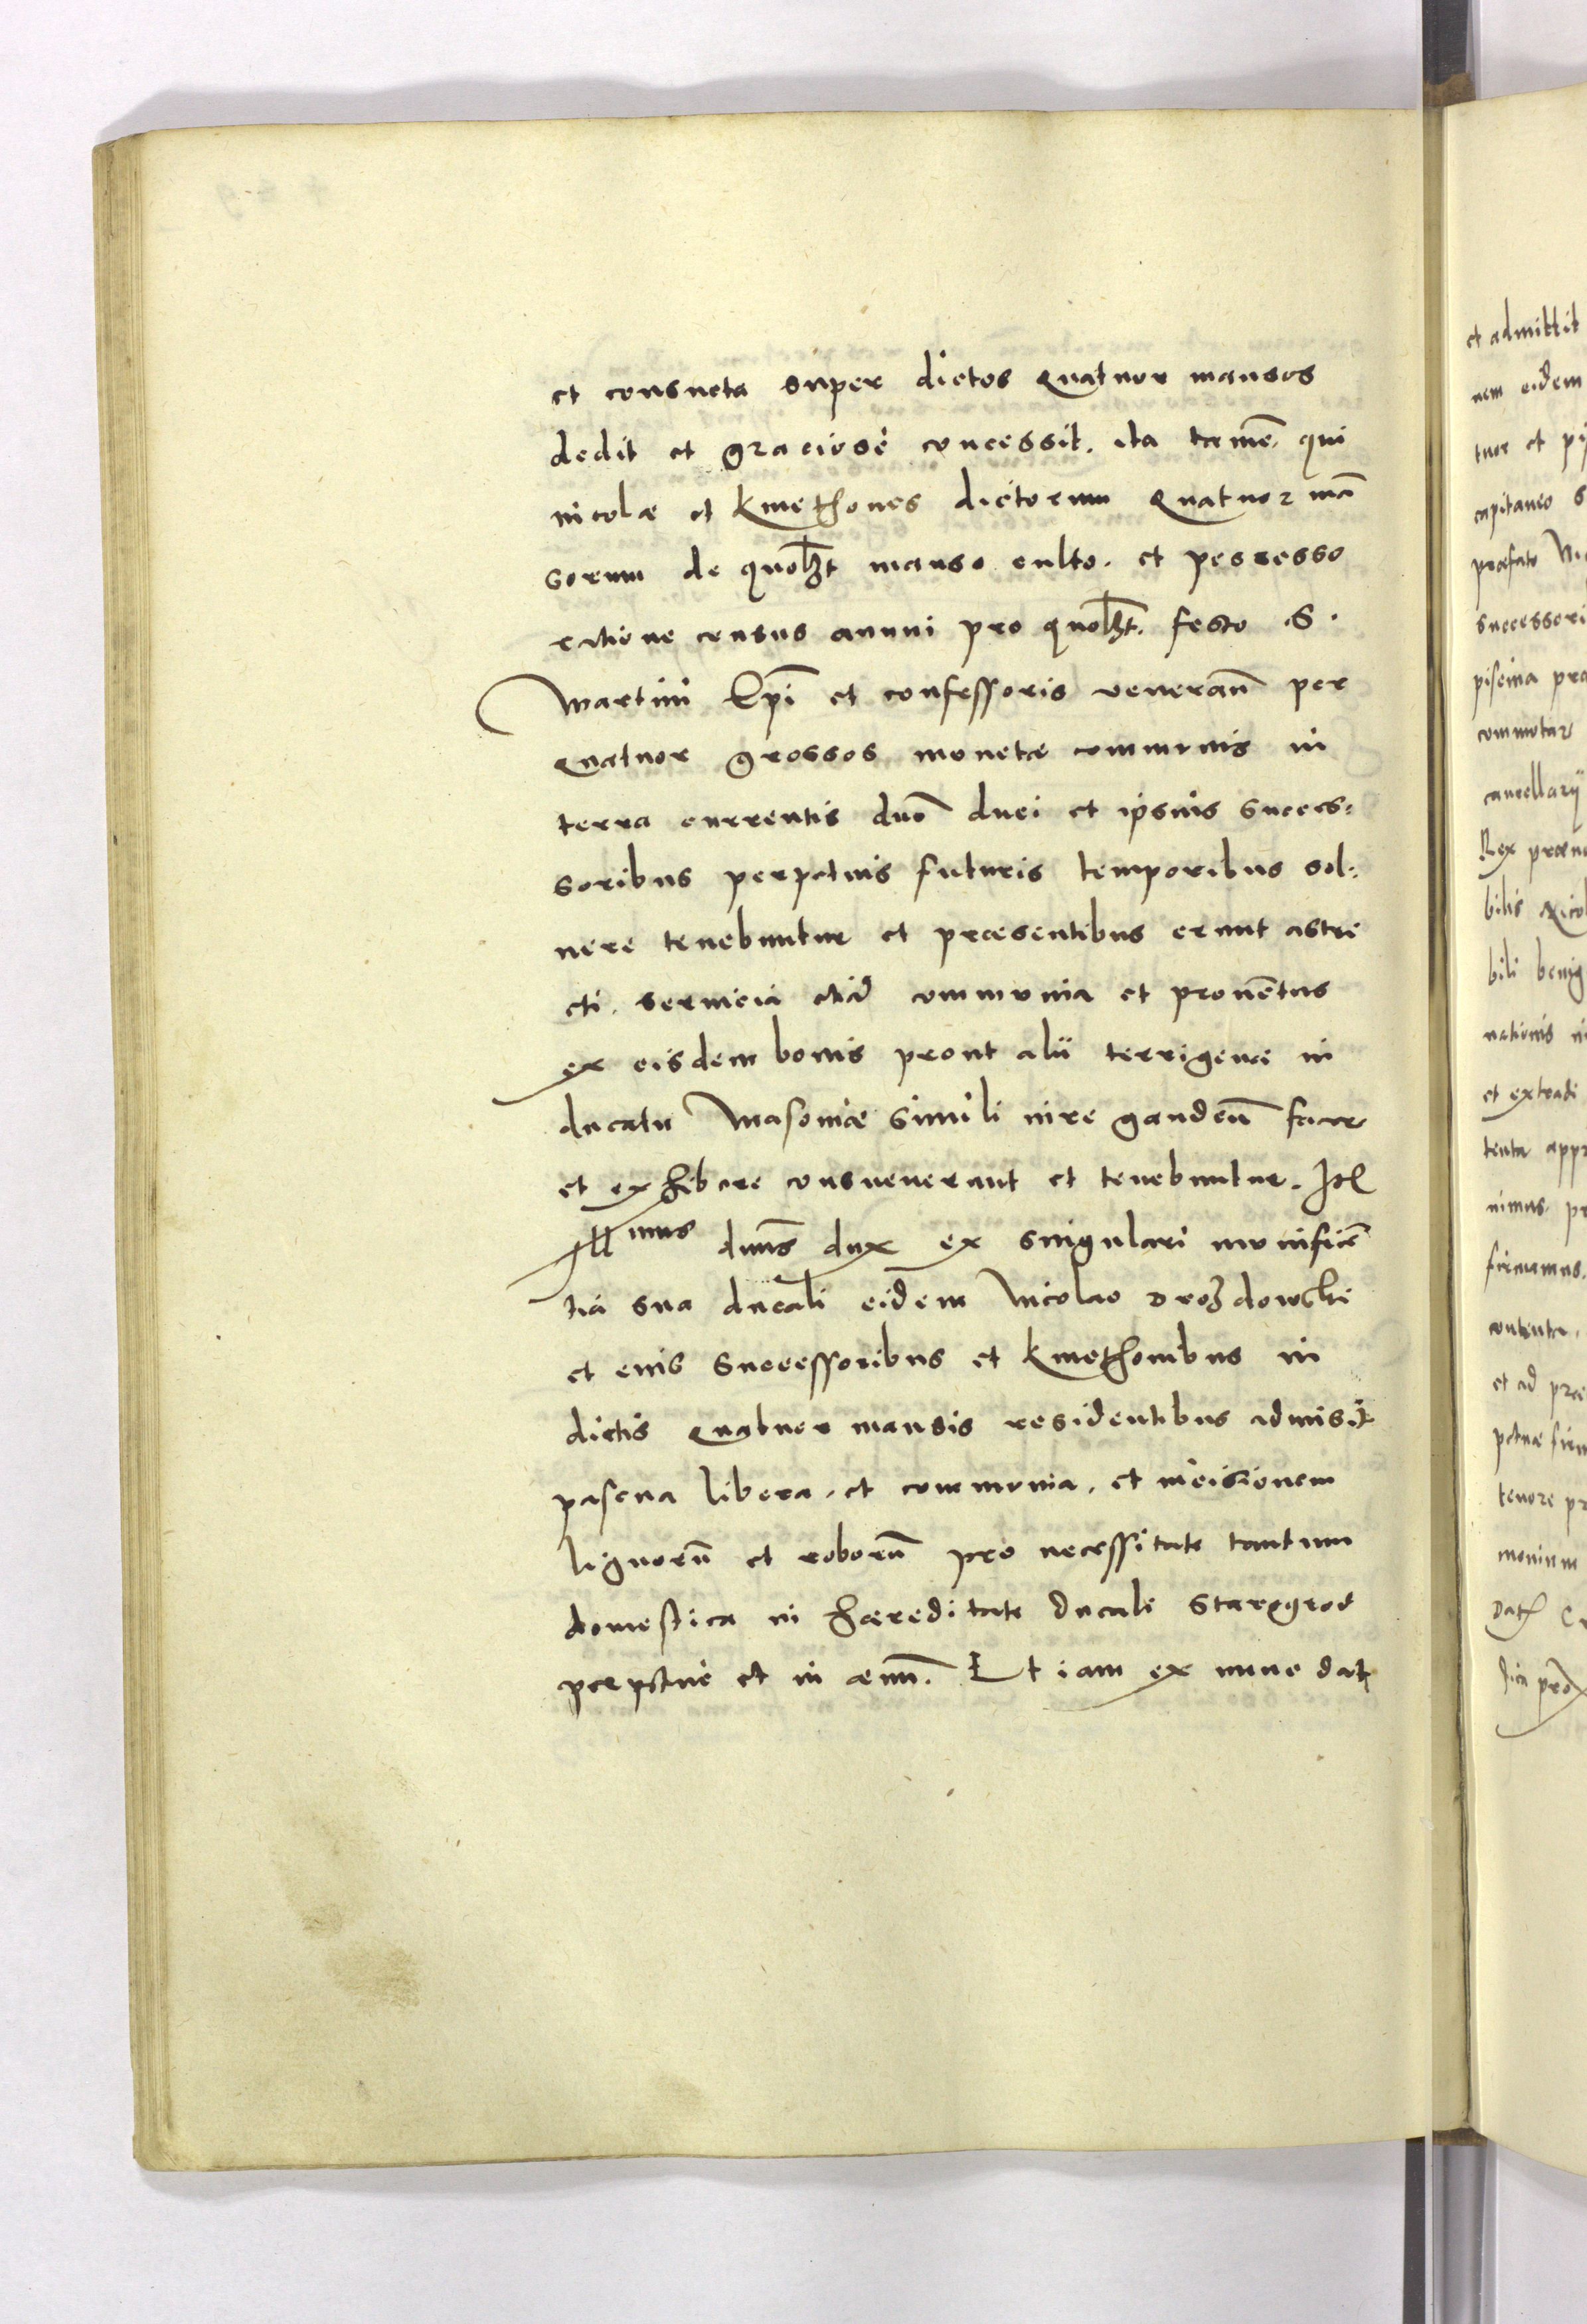 et consueta super dictos quatuor mansos
dedit et graciose concessit. ita tamē qui
incolæ et kmethones dictorum quatuor mā
sorum de quol3t manso culto. et possesso
ratione census annui pro quol3t. festo S.
Martini Epi et confessoris venerañ per
quatuor grossos monetæ communis in
terra currentis duō duci et ipsius succes:
soribus perpetuis futuris temporibus sol:
uere tenebuntur et præsentibus erunt astri
cti. seruicia etiā communia et prouētus
ex eisdem bonis prout alii terrigenæ in
ducatu Masouiæ simili iure gaudeñ facer
et exhibere consueuerunt et tenebuntur. Itē
Illmus dnūs dux ex singulari munificē
tia sua ducali eidem Nicolao Drozdowski
et eius successoribus et kmethonibus in
dictis quatuor mansis residentibus admisit
pascua libera. et communia. et incisionem
lignorū et roborū pro necessitate tantum
domestica in hæreditate ducali Starogrod
perpetue et in æuū. Et iam ex nunc dat
et admittit
nem eidem
tuor et pi
capitaneo S
præfato Ni
successori
piscina præ
commotar
cancellarij
Rex præno
bilis Nicol
bili benig
nationis
et extradi
tenta appr
nimus. pr
firmamus.
contenta.
et ad præ
petuæ firm
tenore pr
monium
Dat. C